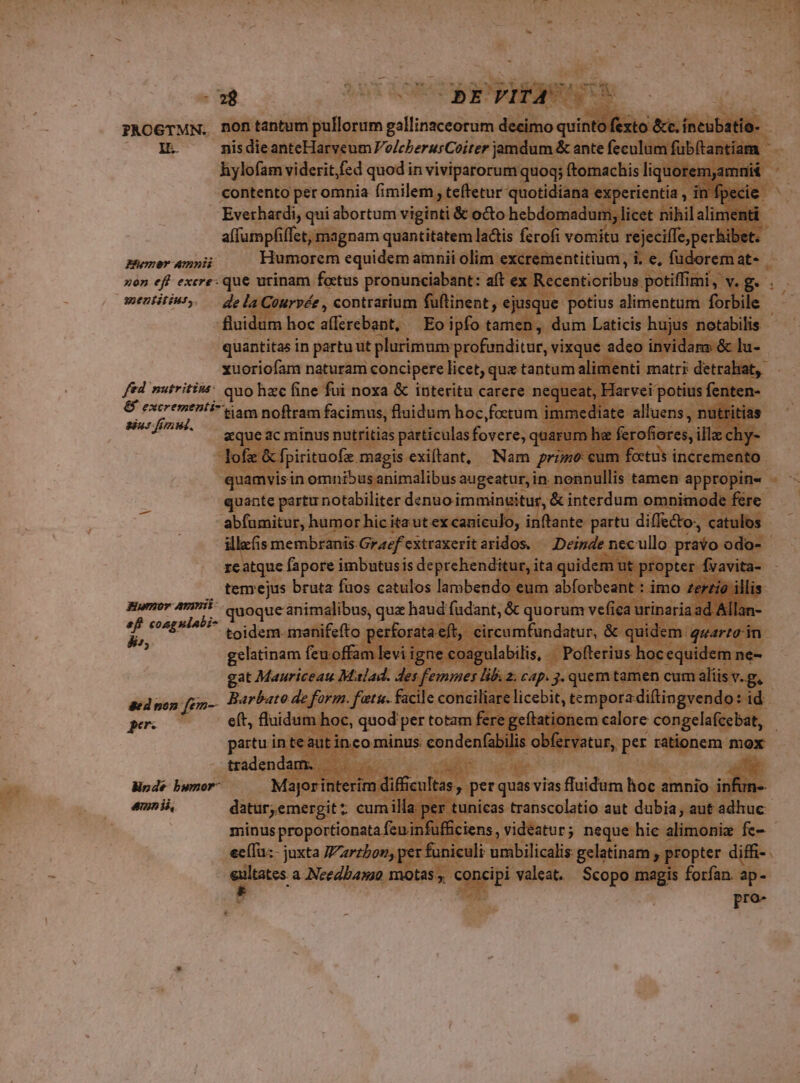 28 DE VITA
PROGYMN. non tantum pullorum gallinaceorum decimo quinto ſexto &c. incubatio-
II. nis die ante Harveum Volcherus Coiter jamdum & ante ſeculum ſubſtantiam
hyloſam viderit, ſed quod in viviparorum quoq; ſtomachis liquorem, amnii
contento per omnia ſimilem, teſtetur quotidiana experientia, in ſpecie
Everhardi, qui abortum viginti & octo hebdomadum, licet nihil alimenti
aſſumpſiſſet, magnam quantitatem lactis ſeroſi vomitu rejeciſſe, perhibet.
Humor amnii Humorem equidem amnii olim excrementitium, i. e. ſudorem at-
non eſt excre- que urinam fœtus pronunciabant: aſt ex Recentioribus potiſſimi, v. g.
mentitius, de la Courvée, contrarium ſuſtinent, ejusque potius alimentum ſorbile
fluidum hoc aſſerebant, Eo ipſo tamen, dum Laticis hujus notabilis
quantitas in partu ut plurimum profunditur, vixque adeo invidam & lu-
xurioſam naturam concipere licet, quæ tantum alimenti matri detrahat,
ſed nutritius quo hæc ſine ſui noxa & interitu carere nequeat, Harvei potius ſenten-
& excrementi- tiam noſtram facimus, fluidum hoc, fœtum immediate alluens, nutritias
tius ſimul, æque ac minus nutritias particulas fovere, quarum hæ ſeroſiores, illæ chy-
loſæ & ſpirituoſæ magis exiſtant, Nam primo cum fœtus incremento
quamvis in omnibus animalibus augeatur, in nonnullis tamen appropin-
quante partu notabiliter denuo imminuitur, & interdum omnimode fere
abſumitur, humor hic ita ut ex caniculo, inſtante partu diſſecto, catulos
illæſis membranis Graef extraxerit aridos. Deinde nec ullo pravo odo-
re atque ſapore imbutus is deprehenditur, ita quidem ut propter ſvavita-
tem ejus bruta ſuos catulos lambendo eum abſorbeant: imo tertio illis
Humor amnii quoque animalibus, quæ haud ſudant, & quorum veſica urinaria ad Allan-
eſt coagulabi- toidem manifeſto perforata eſt, circumfundatur, & quidem quarto in
lis, gelatinam ſeu offam levi igne coagulabilis, Poſterius hoc equidem ne-
gat Mauriceau Malad. des femmes lib. 2. cap. 3. quem tamen cum aliis v. g.
ſed non ſem- Barbato de form. fœtu. facile conciliare licebit, tempora diſtingvendo: id
per. eſt, fluidum hoc, quod per totam fere geſtationem calore congelaſcebat,
partu inteaut in eo minus condenſabilis obſervatur, per rationem mox
tradendam.
Unde humor Major interim difficultas, per quas vias fluidum hoc amnio infun-
amnii, datur, emergit: cum illa per tunicas transcolatio aut dubia, aut adhuc
minus proportionata ſeu inſufficiens, videatur; neque hic alimoniæ ſe-
ceſſu: juxta Warthon, per funiculi umbilicalis gelatinam, propter diffi-
cultates a Needhamo motas, concipi valeat. Scopo magis forſan ap-
pro-